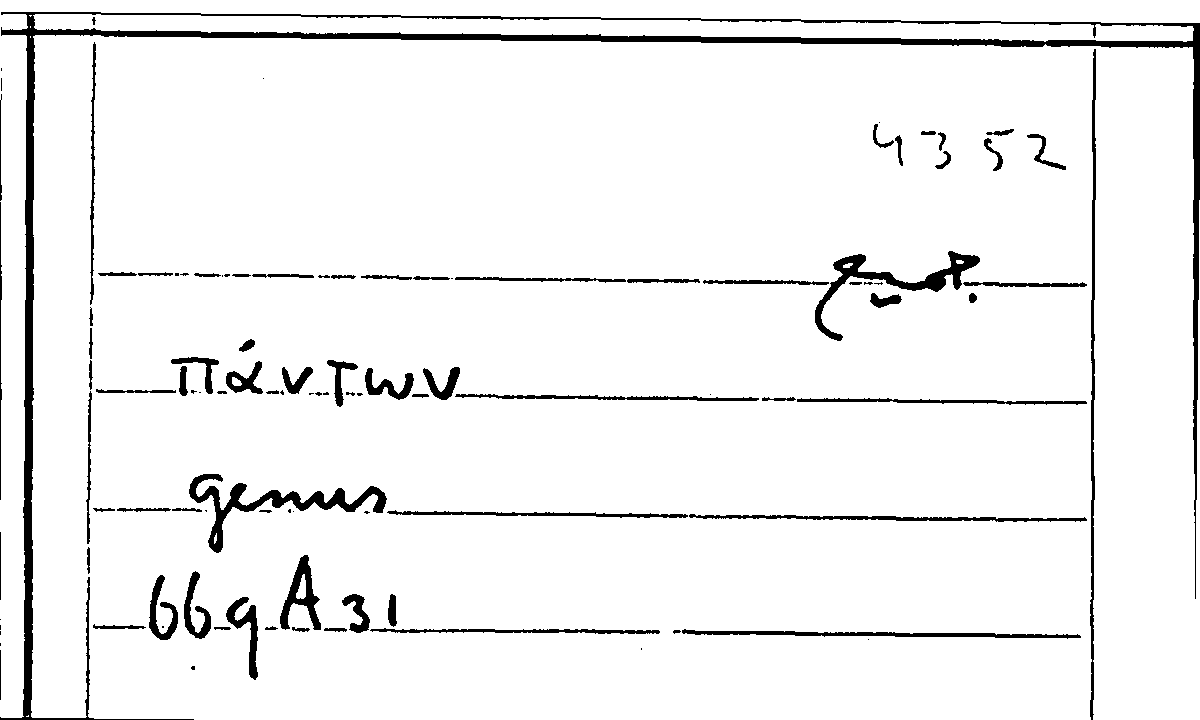 4352
πάντων
genus
669 A 31